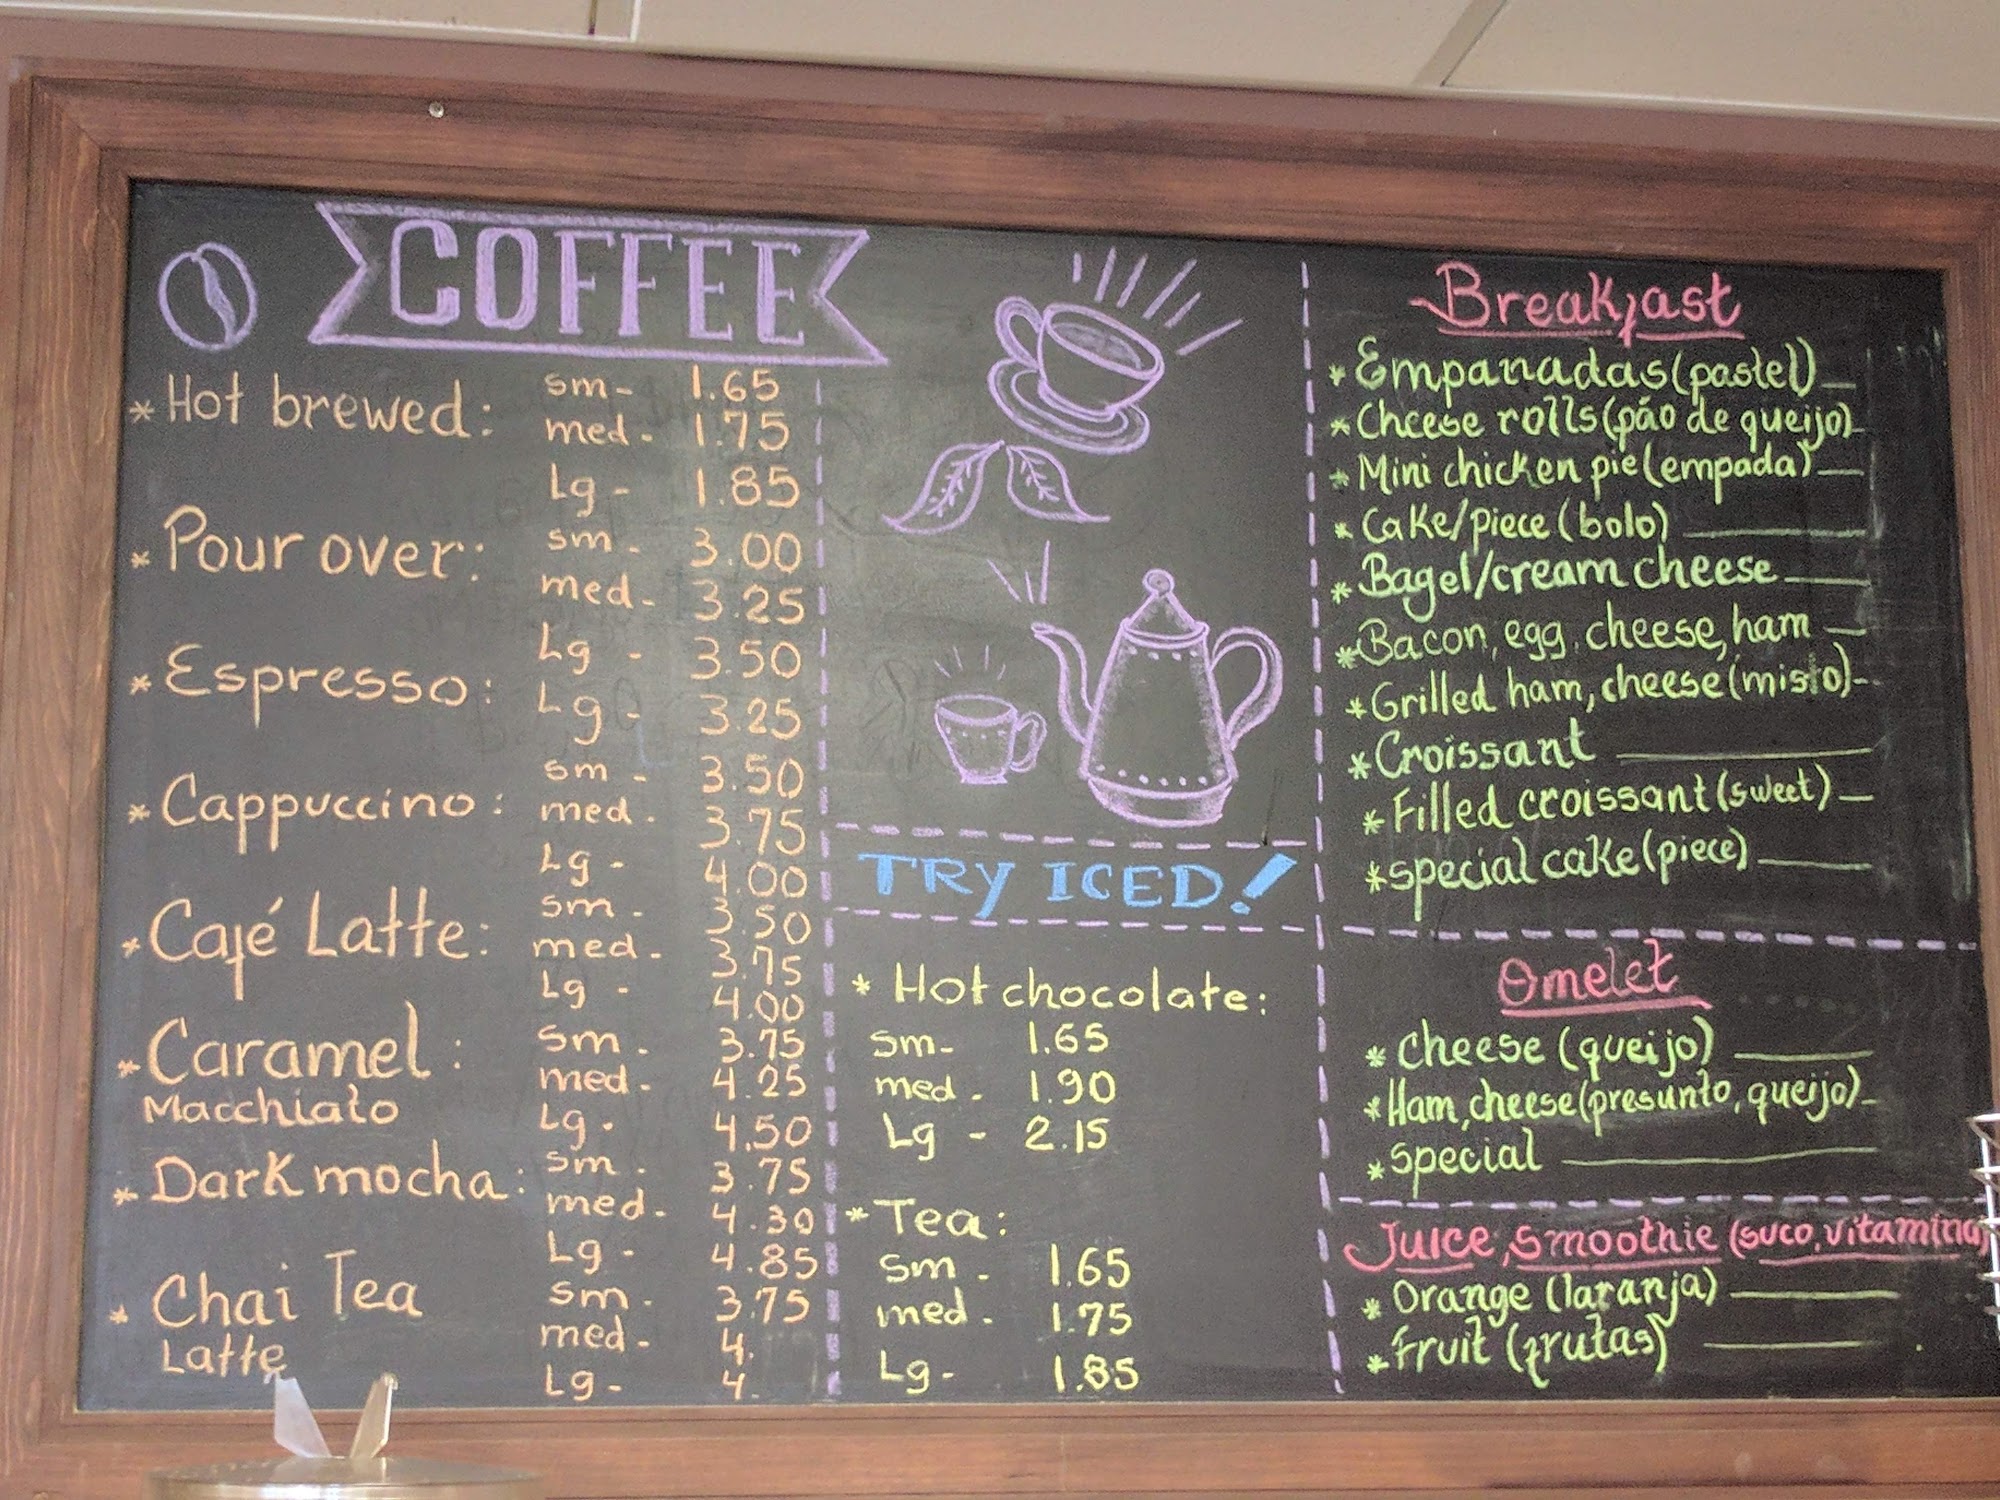 COFFEE
* Hot brewed: sm- 1.65
med- 1.75
Lg- 1.85
* Pour over: sm- 3.00
med- 3.25
Lg- 3.50
* Espresso: Lg- 3.25
* Cappuccino: sm- 3.50
med. 3.75
Lg- 4.00
* Café Latte: sm- 3.50
med- 3.75
Lg- 4.00
* Caramel: sm- 3.75
Macchiato med- 4.25
Lg- 4.50
* Dark mocha: sm- 3.75
med- 4.30
Lg- 4.85
* Chai Tea sm- 3.75
Latte med- 4.
Lg- 4.
TRY ICED!
* Hot chocolate:
sm- 1.65
med. 1.90
Lg- 2.15
* Tea:
sm- 1.65
med. 1.75
Lg- 1.85
Breakfast
* Empanadas (pastel)
* Cheese rolls (pão de queijo)
* Mini chicken pie (empada)
* Cake/piece (bolo)
* Bagel/cream cheese
* Bacon, egg, cheese, ham
* Grilled ham, cheese (misto)
* Croissant
* Filled croissant (sweet)
* special cake (piece)
Omelet
* Cheese (queijo)
* Ham, cheese (presunto, queijo)
* special
Juice, smoothie (suco, vitamina)
* Orange (laranja)
* Fruit (frutas)